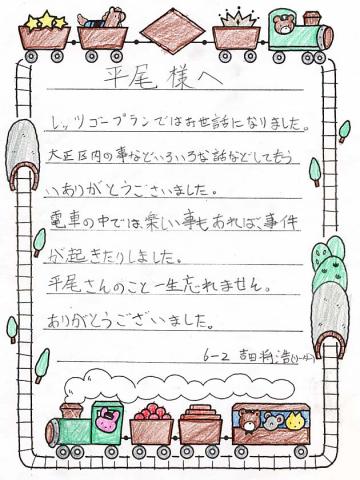 平尾様へ
レッツゴープランではお世話になりました。
大正区内の事などいろいろな話などしてもら
いありがとうございました。
電車の中では楽しい事もあれば、事件
が起きたりしました。
平尾さんのこと一生忘れません。
ありがとうございました。
6-2 吉田将浩(リーダー)